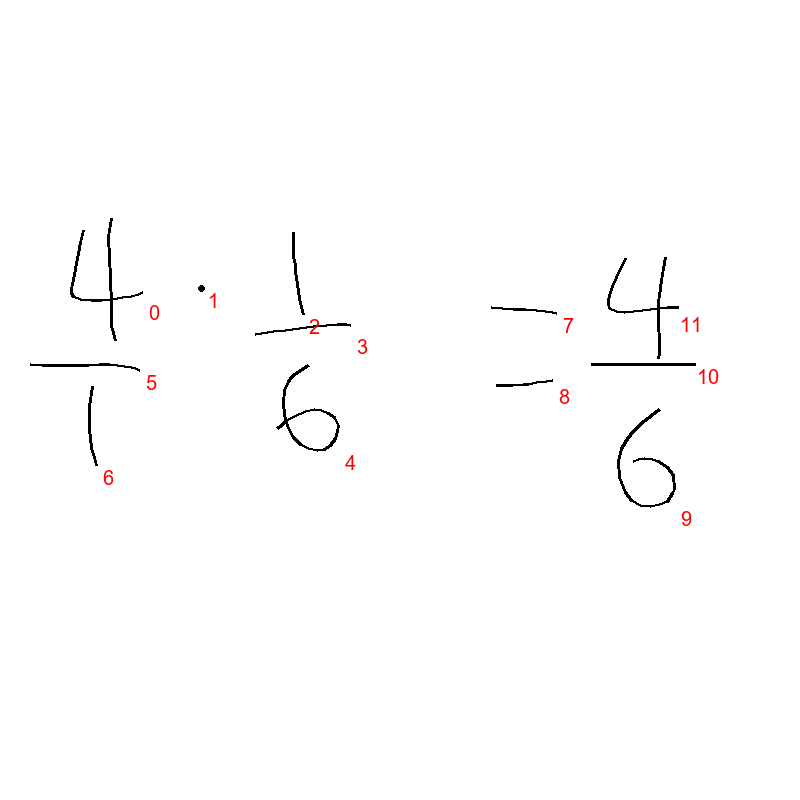 4/1 · 1/6 = 4/6
0 1 2 3 4 5 6 7 8 9 10 11